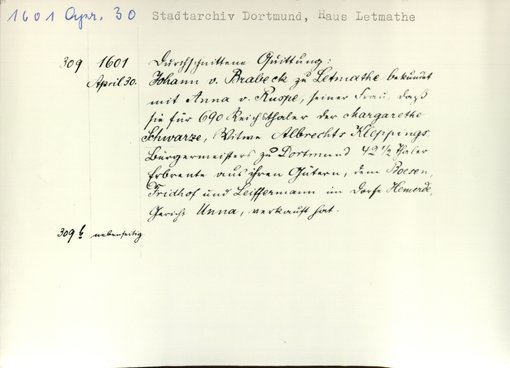 1601 Apr. 30 Stadtarchiv Dortmund, Haus Letmathe
309 1601 Durchschnittene Quittung:
April 30. Johann v. Brabeck zu Letmathe bekundet
mit Anna v. Ruspe, seiner Frau, daß
sie für 690 Reichsthaler der Margarethe
Schwarze, Witwe Albrechts Kleppings
Bürgermeisters zu Dortmund 42 1/2 Thaler
Erbrente aus ihren Gütern, dem Boesen,
Fridhof und Leiffermann im Dorfe Hemerde,
Gericht Unna, verkauft hat.
309 b nebenseitig